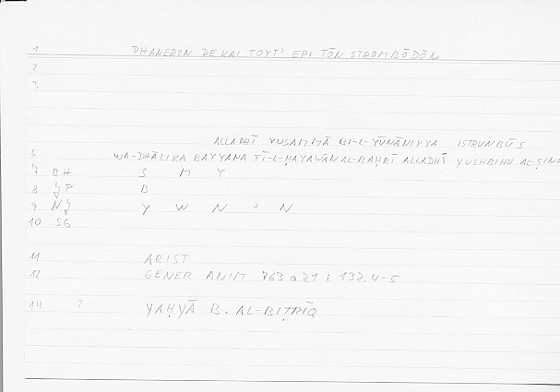 1 PHANERON DE KAI TOYT' EPI TŌN STROMBŌDŌN
2
3
ALLADHĪ YUSAMMĀ BI-L-YŪNĀNIYYA ISTRUNBŪS
6 WA-DHĀLIKA BAYYANA FĪ-L-ḤAYAWĀN AL-BAḤRĪ ALLADHĪ YUSHBIHU AL-ṢINA
7 BH S M Y
8 P B
9 N Y W N ʾ N
10 SG
11 ARIST
12 GENER ANIM 763 a 21 : 132.4-5
14 ? YAḤYĀ B. AL-BIṬRĪQ